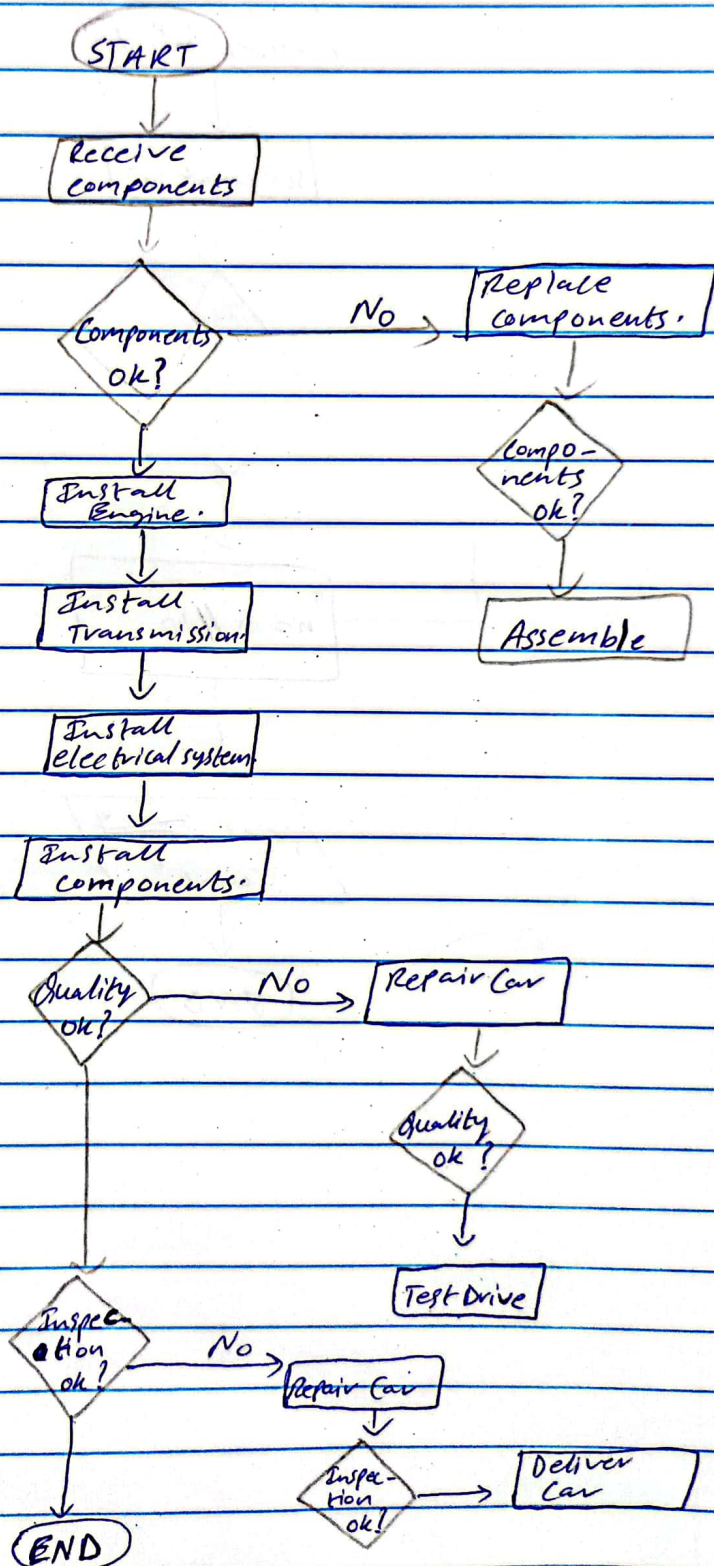 START
Receive
components
Components
ok?
No
Replace
components.
Compo-
nents
ok?
Assemble
Install
Engine.
Install
Transmission.
Install
electrical system.
Install
components.
Quality
ok?
No
Repair Car
Quality
ok?
Test Drive
Inspec-
tion
ok?
No
Repair Car
Inspec-
tion
ok?
Deliver
Car
END